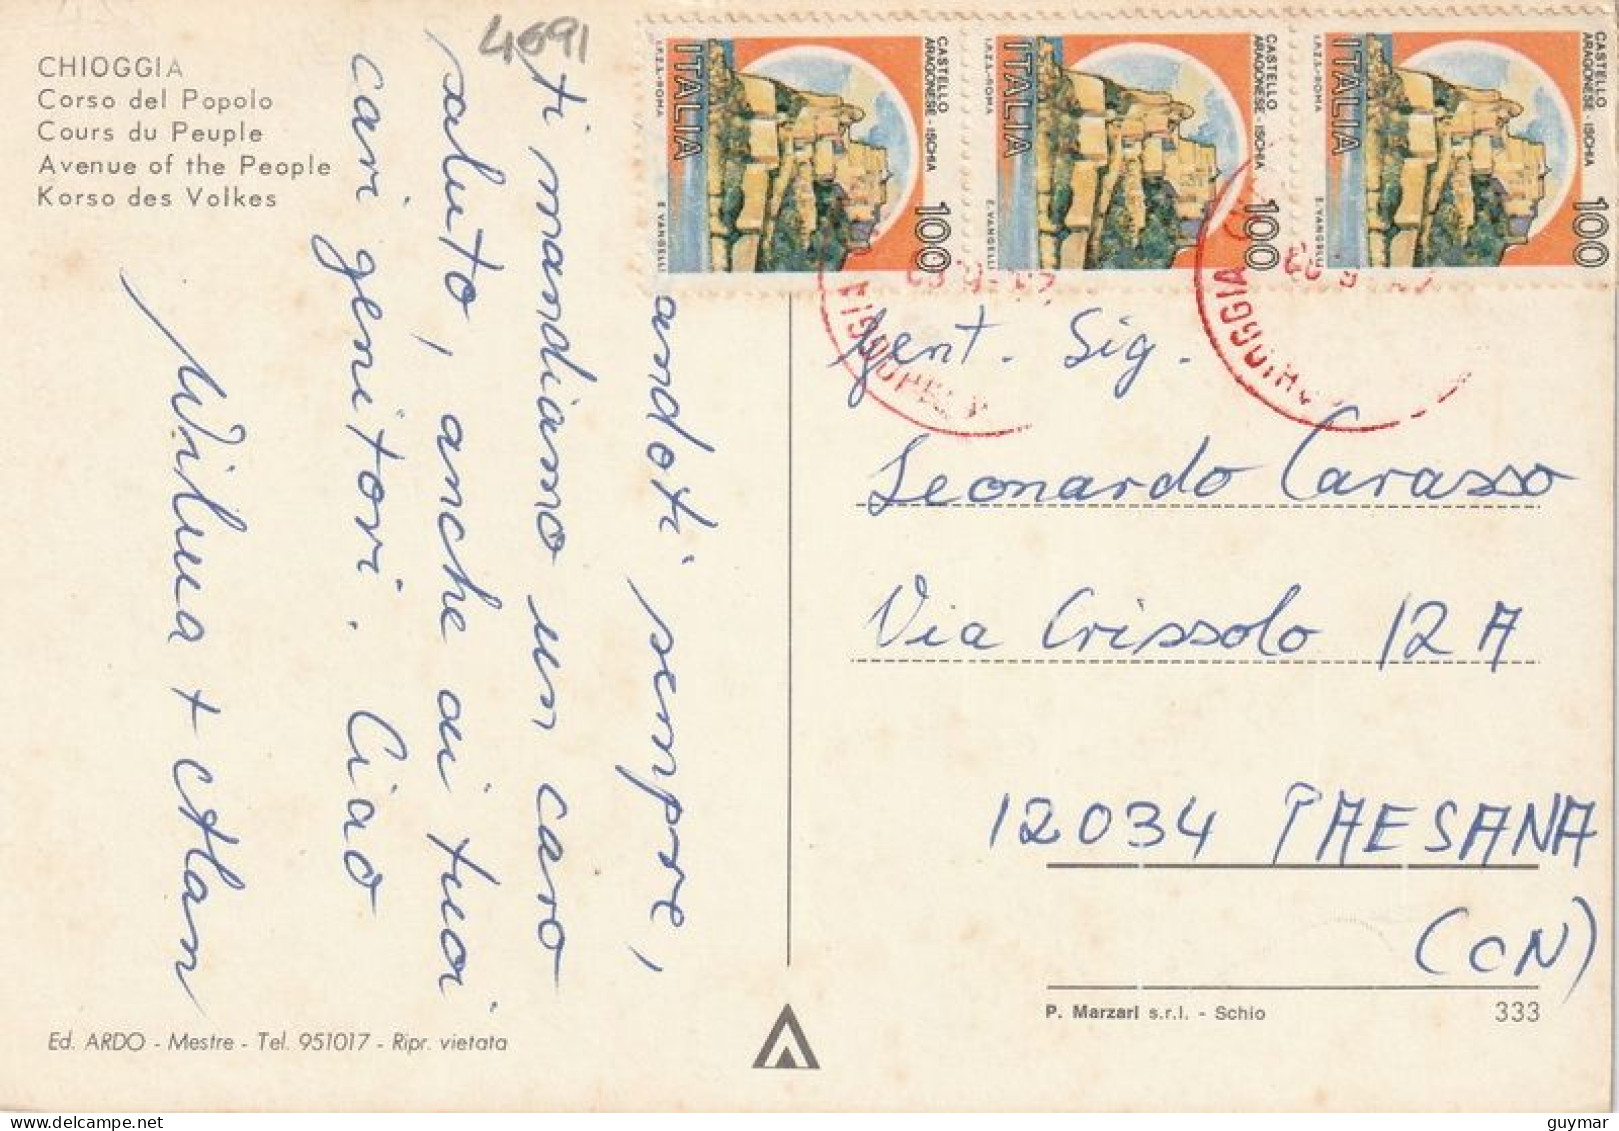 4691
CHIOGGIA
Corso del Popolo
Cours du Peuple
Avenue of the People
Korso des Volkes
CASTELLO
ARAGONESE - ISCHIA
100
ITALIA
I.P.Z.S.-ROMA
E. VANGELLI
CASTELLO
ARAGONESE - ISCHIA
100
ITALIA
I.P.Z.S.-ROMA
E. VANGELLI
CASTELLO
ARAGONESE - ISCHIA
100
ITALIA
I.P.Z.S.-ROMA
E. VANGELLI
andoti sempre,
ti mandiamo un caro
saluto, anche ai tuoi
cari genitori. Ciao
Wilma + Alan
Gent. Sig.
Leonardo Carasso
Via Crissolo 12 A
12034 PAESANA
(CN)
Ed. ARDO - Mestre - Tel. 951017 - Ripr. vietata
P. Marzari s.r.l. - Schio
333
guymar